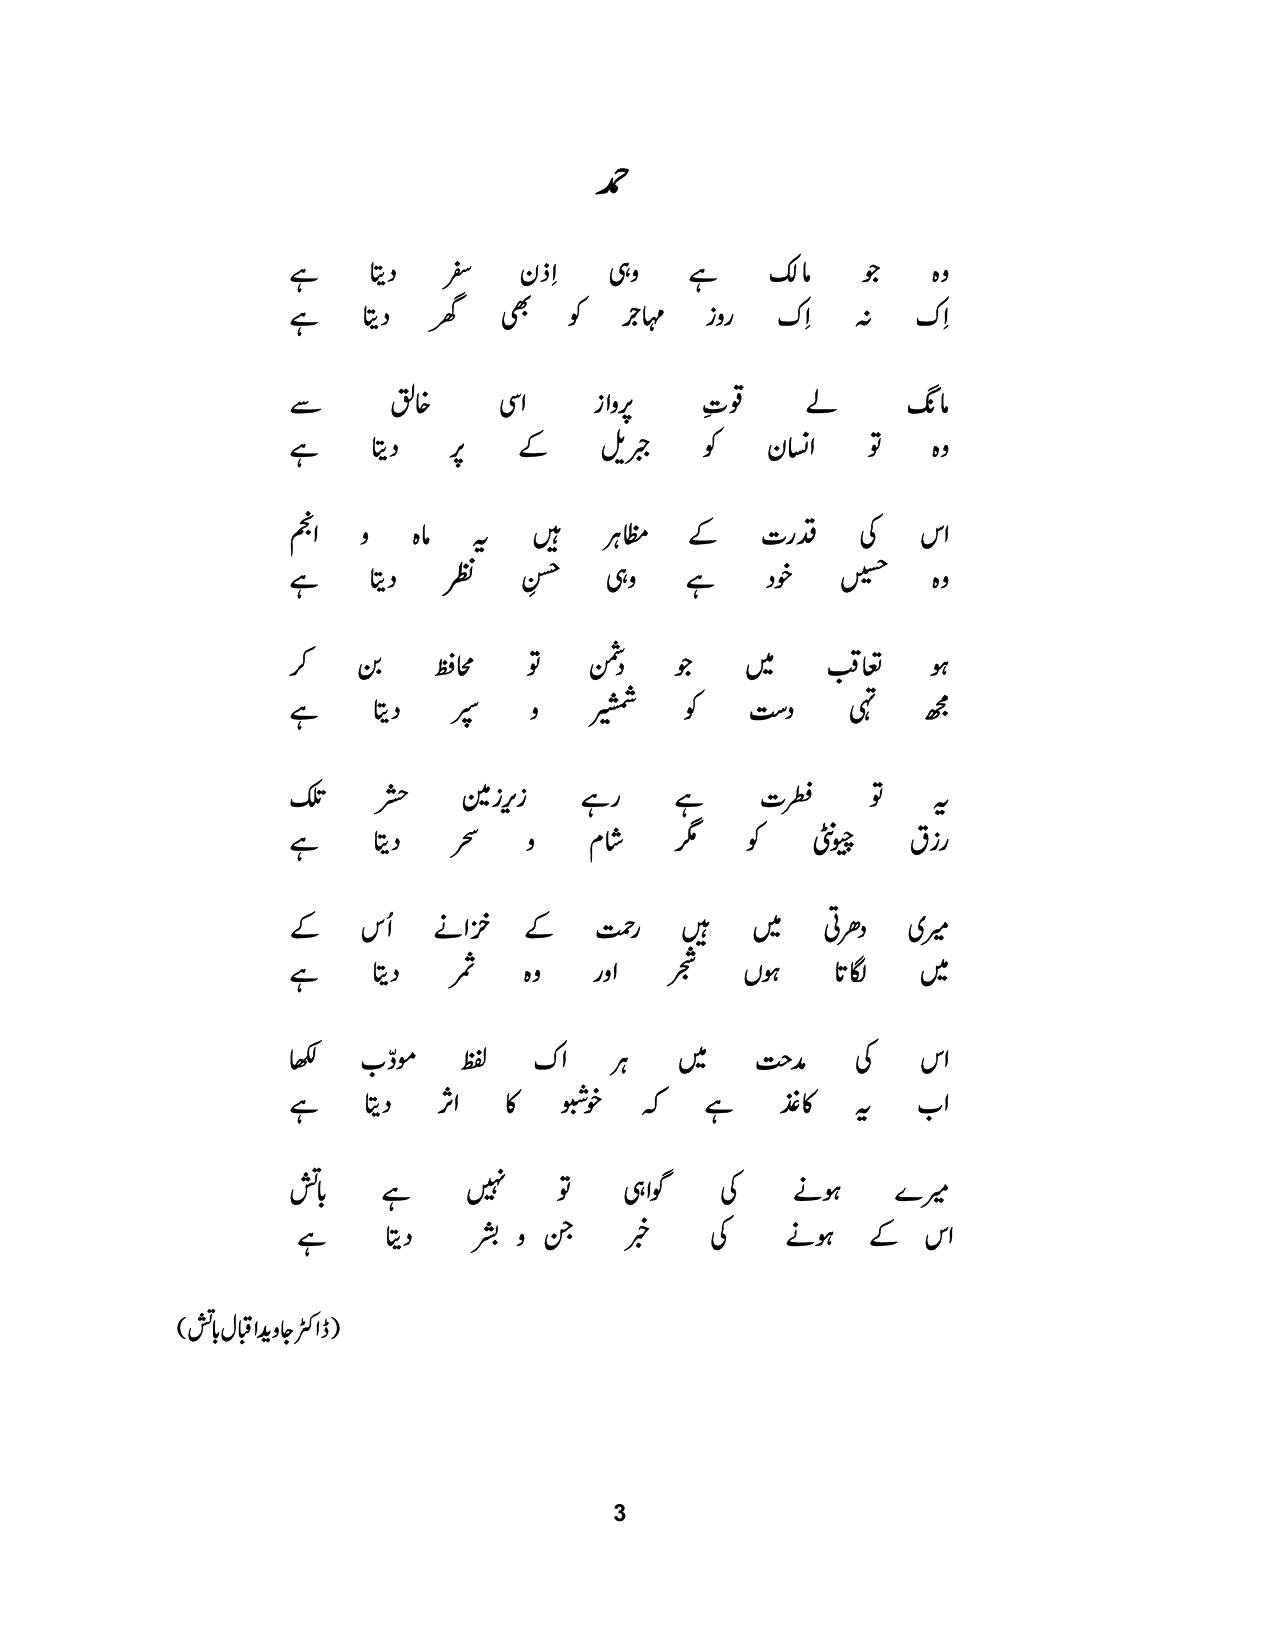 حمد
وہ جو مالک ہے وہی اِذن سفر دیتا ہے
اِک نہ اِک روز مہاجر کو بھی گھر دیتا ہے
مانگ لے قوتِ پرواز اسی خالق سے
وہ تو انسان کو جبریل کے پر دیتا ہے
اس کی قدرت کے مظاہر ہیں یہ ماہ و انجم
وہ حسیں خود ہے وہی حسنِ نظر دیتا ہے
ہو تعاقب میں جو دشمن تو محافظ بن کر
مجھ تہی دست کو شمشیر و سپر دیتا ہے
یہ تو فطرت ہے رہے زیرزمین حشر تلک
رزق چیونٹی کو مگر شام و سحر دیتا ہے
میری دھرتی میں ہیں رحمت کے خزانے اُس کے
میں لگاتا ہوں شجر اور وہ ثمر دیتا ہے
اس کی مدحت میں ہر اک لفظ مودّب لکھا
اب یہ کاغذ ہے کہ خوشبو کا اثر دیتا ہے
میرے ہونے کی گواہی تو نہیں ہے باتش
اس کے ہونے کی خبر جن و بشر دیتا ہے
(ڈاکٹر جاوید اقبال باتش)
3